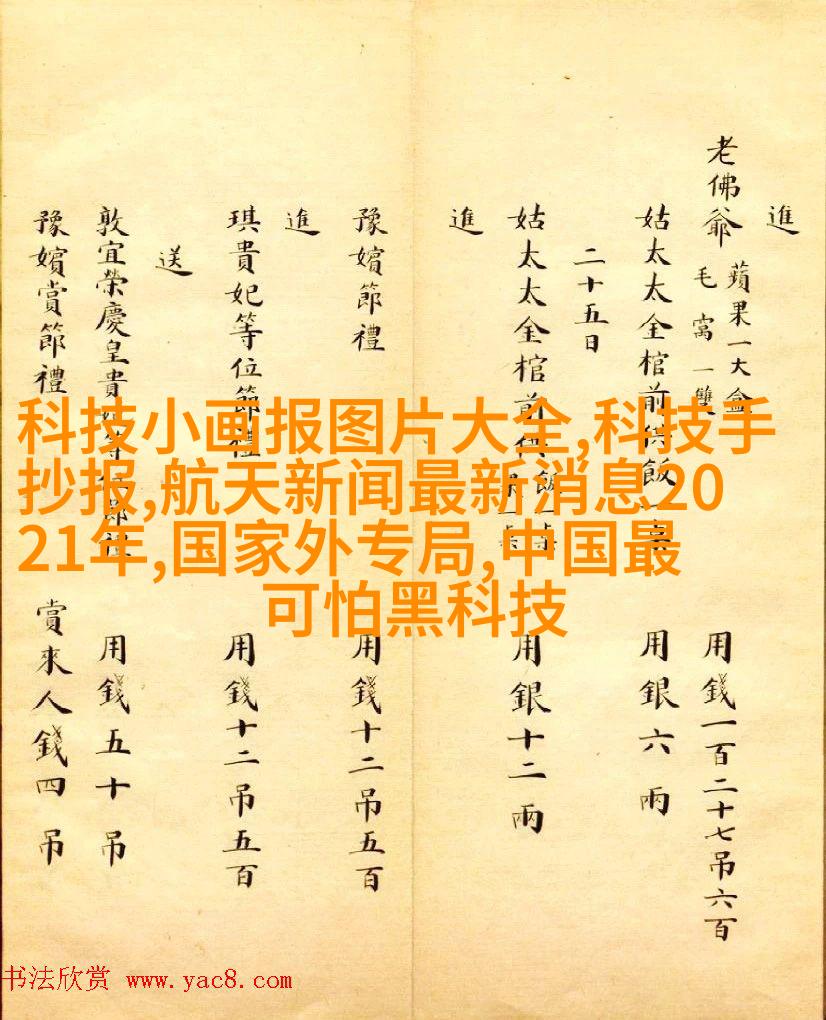 進
老佛爺 蘋果一大盒 毛窩一雙 用錢一百二十七吊六百
姑太太金棺前供飯一桌 用銀六兩
二十五日
姑太太金棺前供飯一桌 用銀十二兩
進
豫嬪節禮 用錢十二吊五百
進
琪貴妃等位節禮 用錢十二吊五百
送
敦宜榮慶皇貴妃等位節禮 用錢五十吊
豫嬪賞節禮 賞來人錢四吊
科技小画报图片大全,科技手
抄报,航天新闻最新消息20
21年,国家外专局,中国最
可怕黑科技
书法欣赏 www.yac8.com